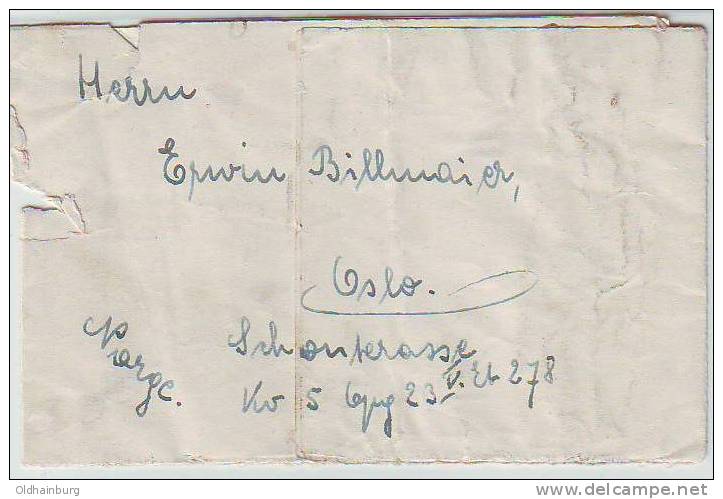 Herrn
Erwin Billmaier,
Oslo.
Schonterasse
Norge.
Kv 5 Opg 23 V. Et 278
Oldhainburg
http://www.delcampe.net